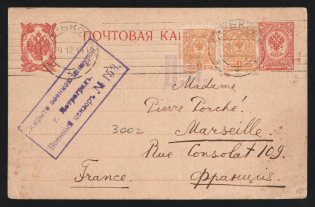 ПОЧТОВАЯ КА
Петроградъ
Военный цензоръ № 158
Madame
Pierre Porche.
300=
Marseille.
Rue Consolat 109.
France. Франція.